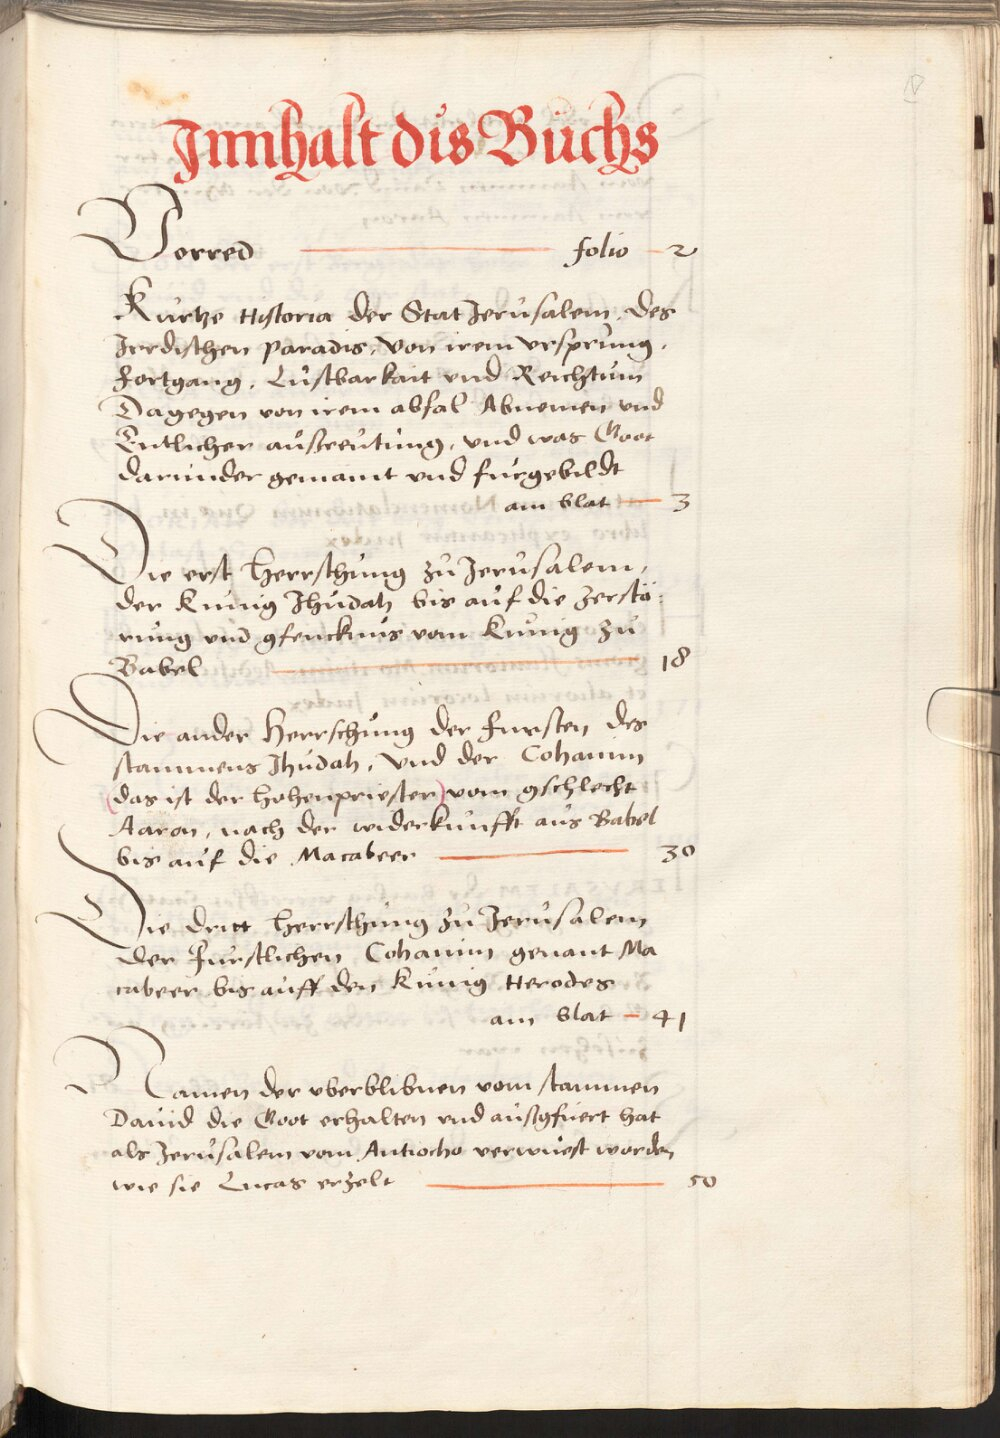 Innhalt dis Buchs
Vorred folio 2
Kurtze Historia der Stat Jerusalem, des
Jrrdischen paradis, von irem vrsprung,
fortgang, Lustbarkait vnd Reichtum
Dagegen von irem abfal Abnemen vnd
Entlicher außreutung, vnd was Goot
darunder gemaint vnd furgebildt
am blat 3
Die erst Herrschung zu Jerusalem,
der Kunig Jhudah bis auf die zerstö:
rung vnd gfencknus vom Kunig zu
Babel 18
Die ander Herrschung der fursten des
stammens Jhudah, vnd der Cohanim
(das ist der hohenpriester) vom gschlecht
Aaron, nach der widerkunfft aus Babel
bis auf die Macabeer 30
Die dritt Herrschung zu Jerusalem
der Furstlichen Cohanim genant Ma
cabeer bis auff den Kunig Herodes
am blat 41
Namen der vberblibnen vom stammen
Dauid die Goot erhalten vnd außgfuert hat
als Jerusalem vom Antiocho verwuest worden
wie sie Lucas erzelt 50